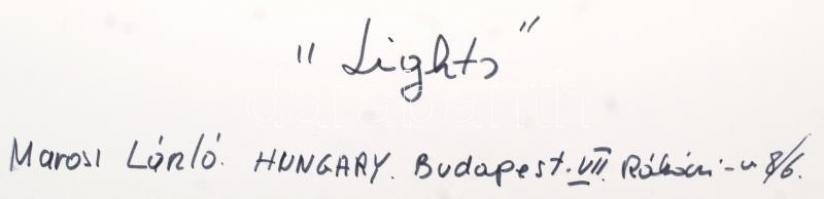 "Lights"
Marosi László. HUNGARY. Budapest. VII. Rákóczi-u 8/6.